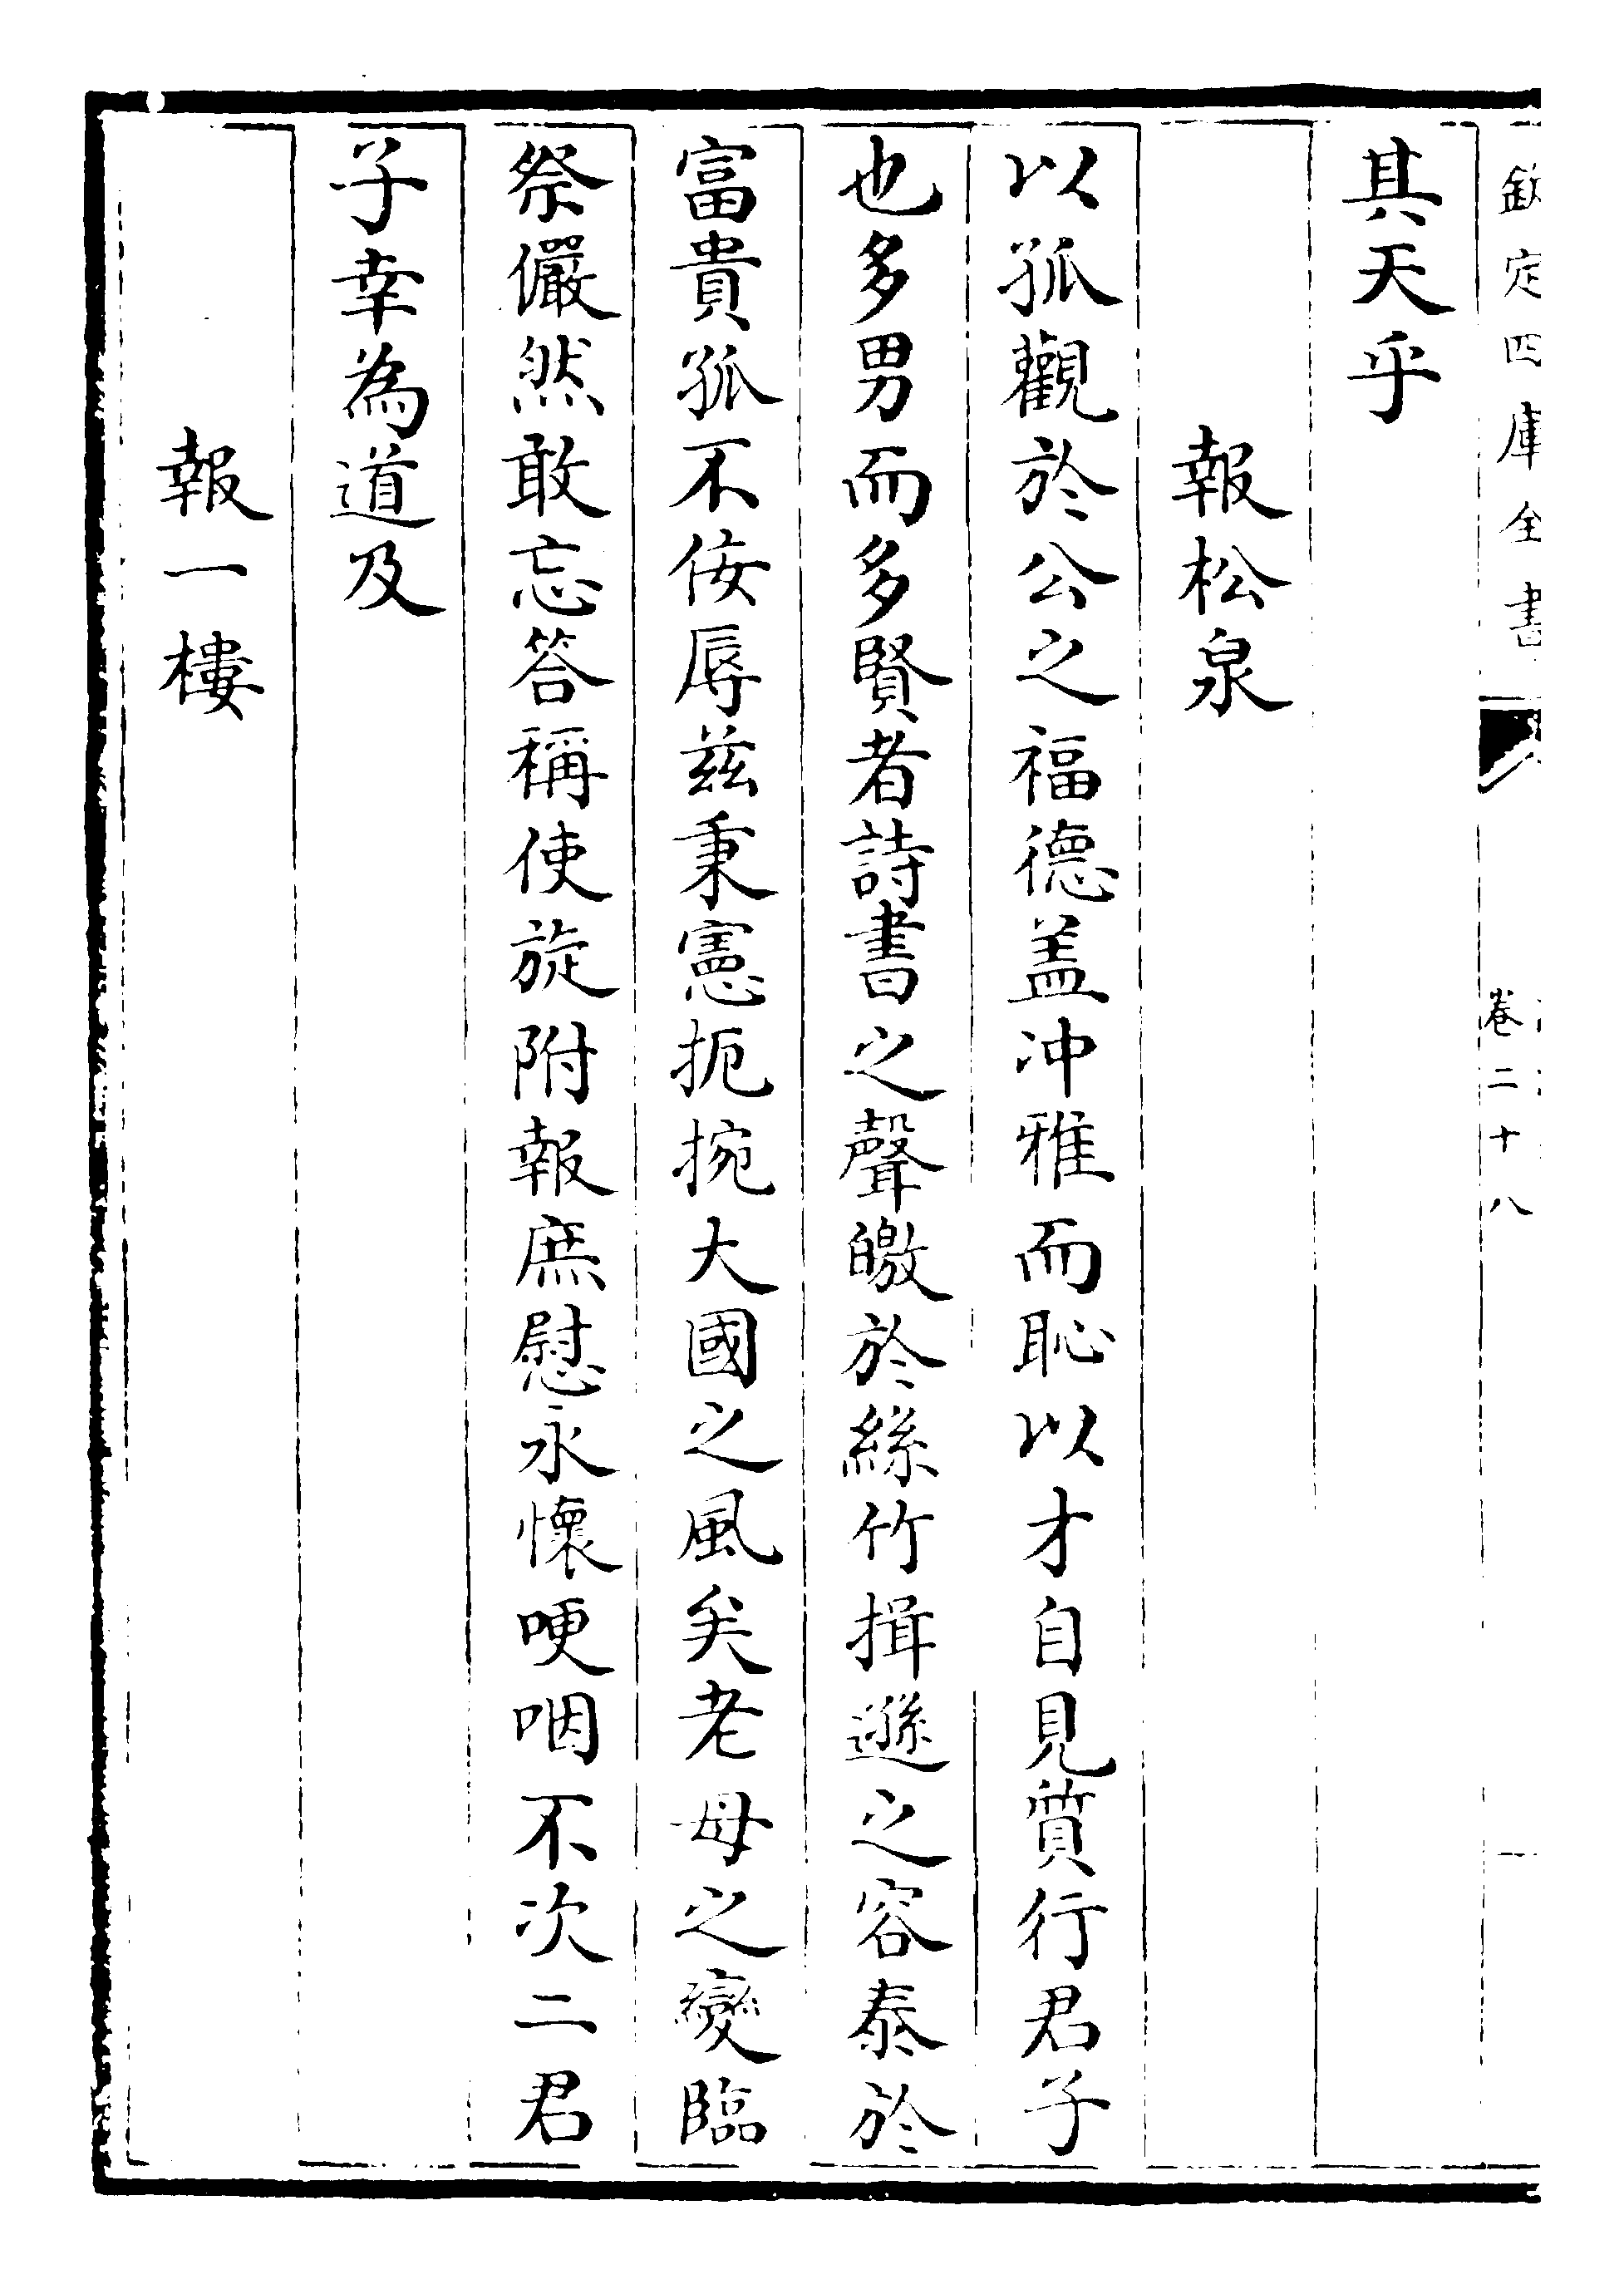 欽定四庫全書
卷二十八
其天乎
報松泉
以孤觀於公之福德盖冲雅而恥以才自見質行君子
也多男而多賢者詩書之聲皦於絲竹揖遜之容泰於
富貴孤不佞辱兹秉憲扼捥大國之風矣老母之變臨
祭儼然敢忘答稱使旋附報庶慰永懷哽咽不次二君
子幸為道及
報一樓